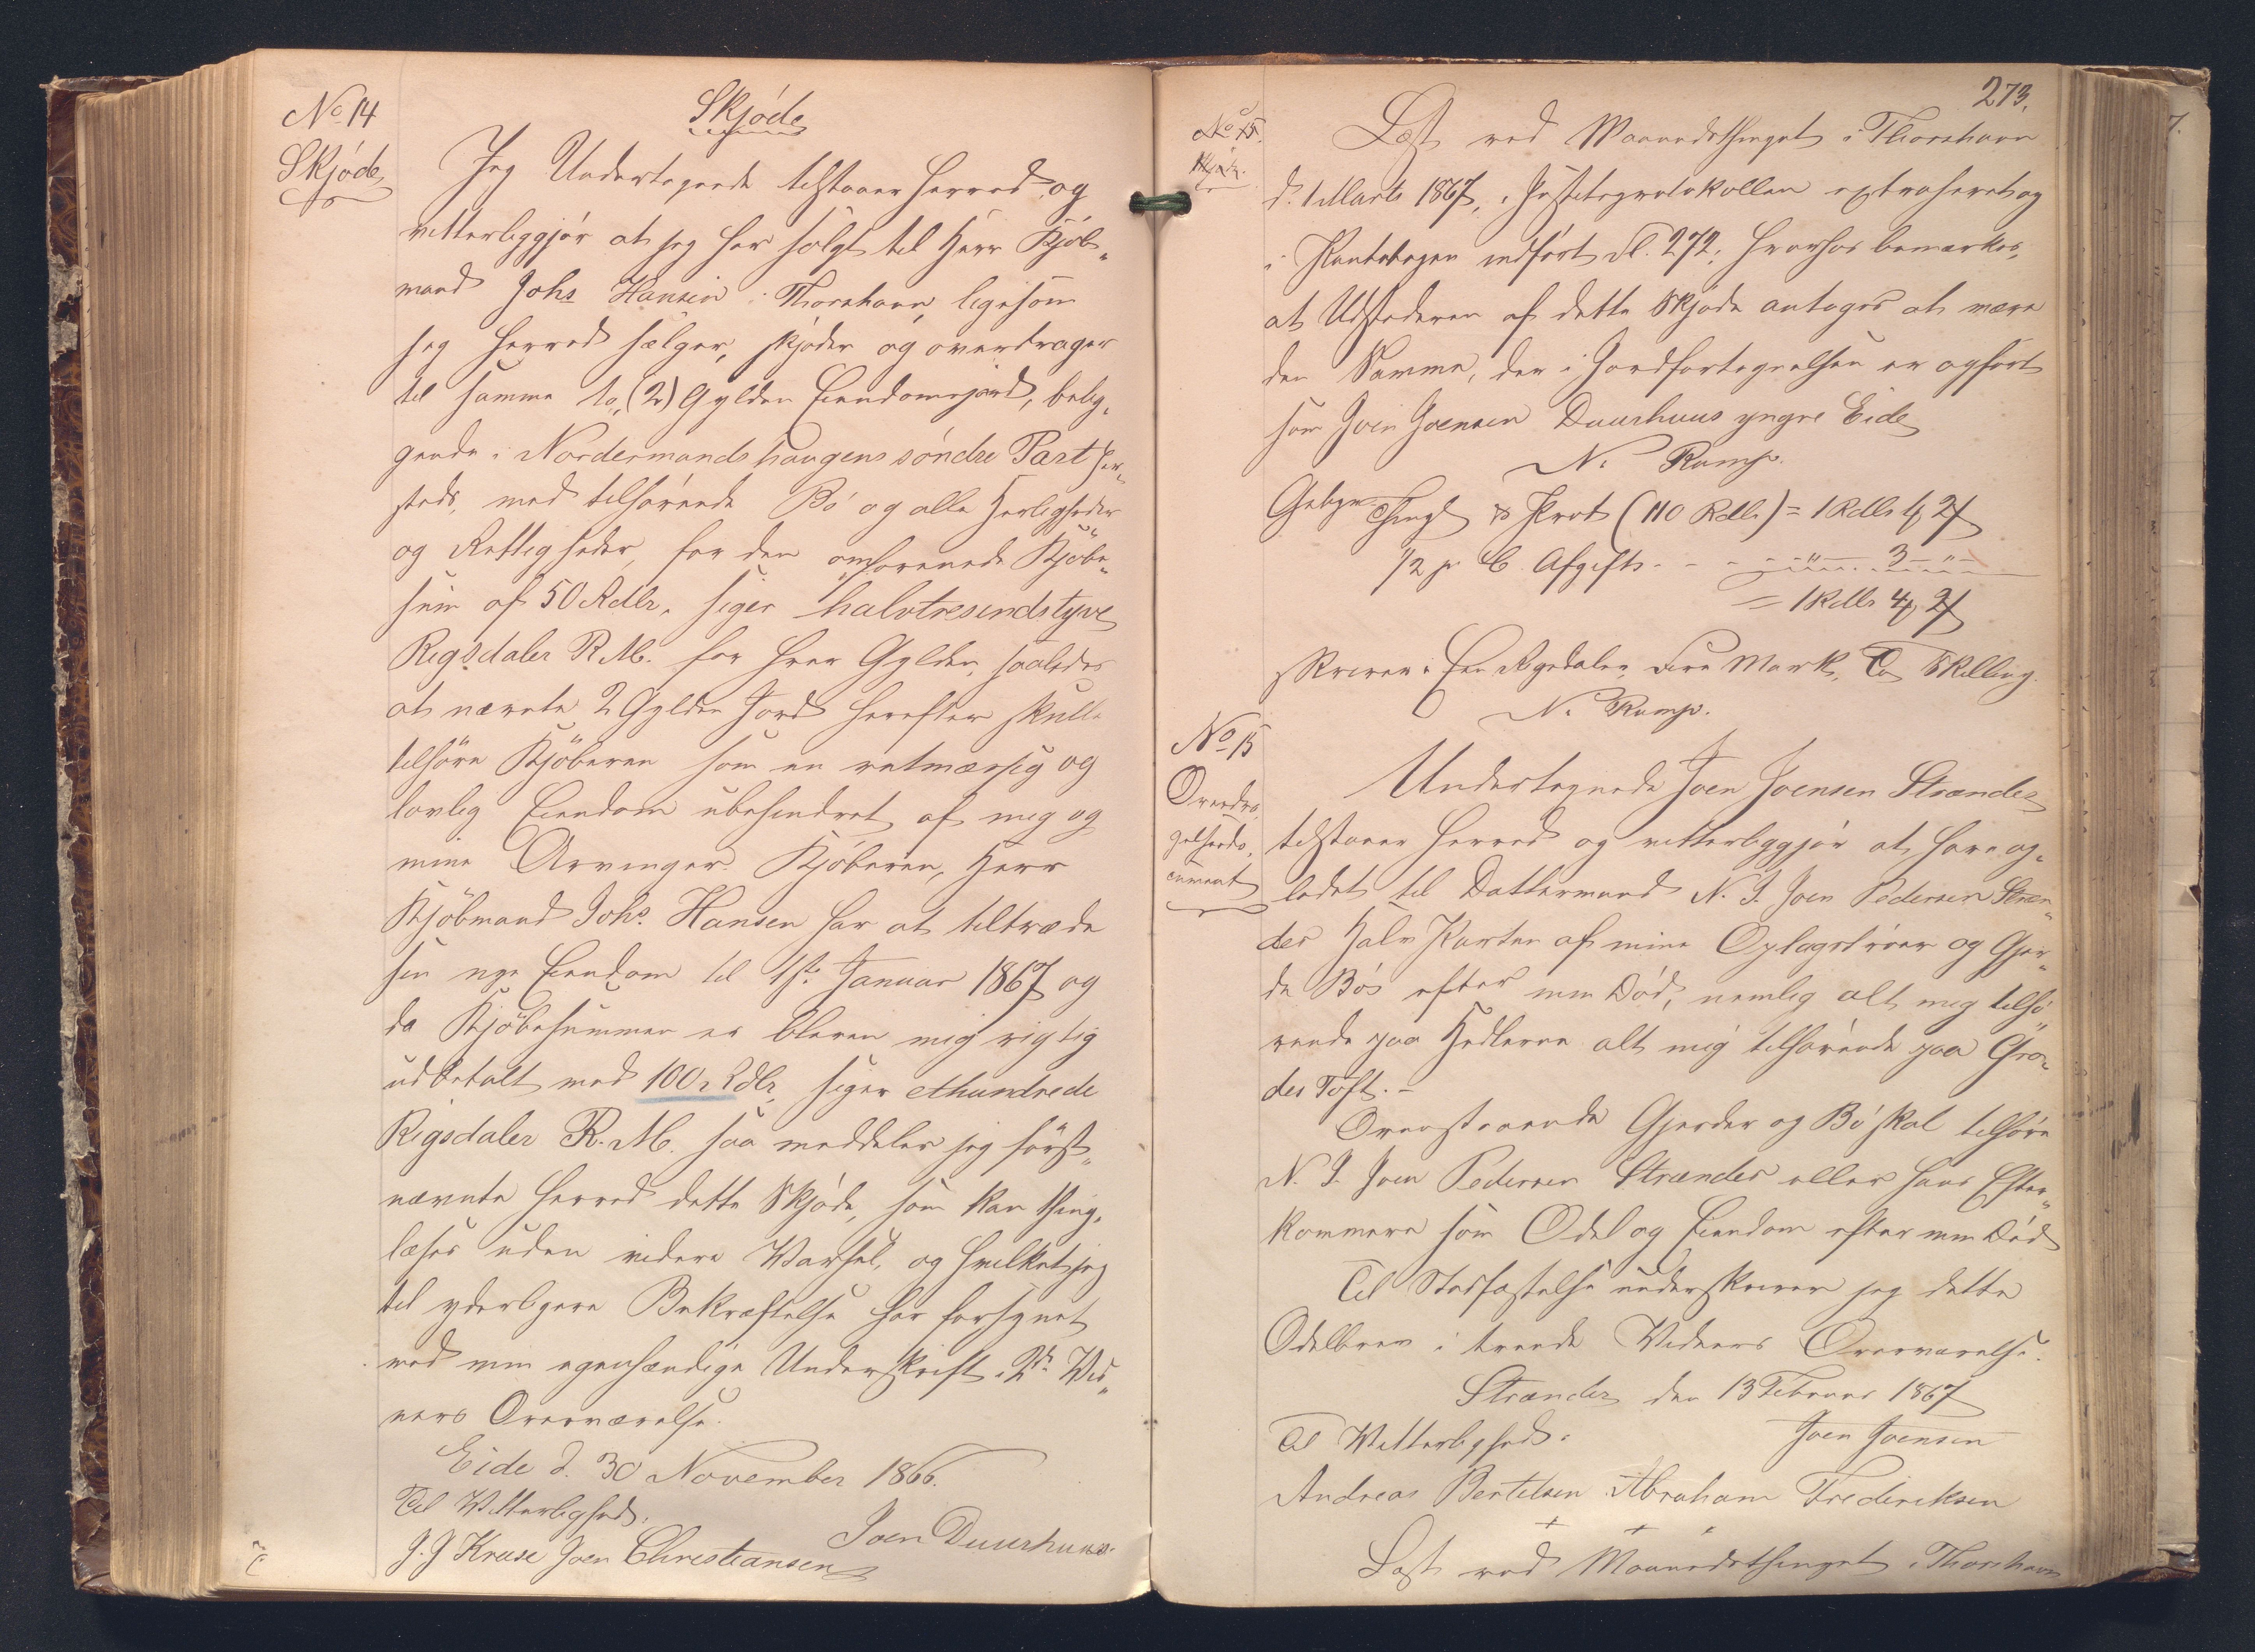 No 14
Skjöde
Skjöde
Jeg Undertegnede tilstaaer herved og
vitterliggjör at jeg har solgt til Herr Kjöb„
mand Johs Hansen i Thorshavn, ligesom
jeg herved sælger, skjöder og overdrager
til samme to„ (2) Gylden Eiendomsjord, belig„
gende i Nordermandshaugens söndre Part her„
steds, med tilhörende Bö og alle Herligheder
og Rettigheder, for den omforenede Kjöbe„
sum af 50 Rdlr. siger halvtresindstyve
Rigsdaler R. M. for hver Gylden, saaledes
at nævnte 2 Gylden Jord herefter skulle
tilhöre Kjöberen som en retmæssig og
lovlig Eiendom ubehindret af mig og
mine Arvinger. Kjöberen, Herr
Kjöbmand Johs. Hansen har at tiltræde
sin nye Eiendom til 1ste Januar 1867 og
da Kjöbesummen er bleven mig rigtig
udbetalt med 100 Rdlr, siger ethundrede
Rigsdaler R. M. saa meddeler jeg först„
nævnte herved dette Skjöde, som kan thing„
læses uden videre Varsel, og hvilket jeg
til yderligere Bekræftelse har forsynet
med min egenhændige Underskrift i 2de Vid„
ners Overværelse.
Eide d. 30 November 1866.
Til Vitterlighed:
Joen Duurhuus.
J. J Kruse Joen Christiansen
273.
No 15.
Læst ved Maanedsthinget i Thorshavn
d. 1 Marts 1867, i Justitsprotokollen extraheret og
i Pantebogen indfört Fl. 272; hvorhos bemærkes,
at Udstederen af dette Skjöde antages at være
den Samme, der i Jordfortegnelsen er opfört
som Joen Joensen Duurhuus yngre Eide
N. Rump.
Gebyr Thingl & Prot (110 Rdlr) = 1 Rdlr 4 2
1/2 pr C. Afgift - - - „ - 3 - „
= 1 Rdlr 4 2
skriver: Een Rigsdaler, Fire Mark, To Skilling.
N. Rump.
No 15
Overdra„
gelsesdo„
cument
Undertegnede Joen Joensen Strænder
tilstaaer herved og vitterliggjör at have op„
ladet til Dattermand N. J. Joen Pedersen Stræn„
der Halv Parten af mine Oplagströer og Gjer„
de Bös efter min Död, nemlig alt mig tilhö„
rende paa Hedlerne alt mig tilhörende paa Gra„
des Toft. -
Ovenstaaende Gjerder og Bö skal tilhöre
N. J. Joen Pedersen Strænder eller hans Efter„
kommere som Odel og Eiendom efter min Död
Til Stadfæstelse underskriver jeg dette
Odelbrev i tvende Vidners Overværelse.
Strænder den 13 Februar 1867
Til Vitterlighed:
Joen Joensen
Andreas Bertelsen Abraham Frederiksen
+ + +
Læst ved Maanedsthinget i Thorshavn